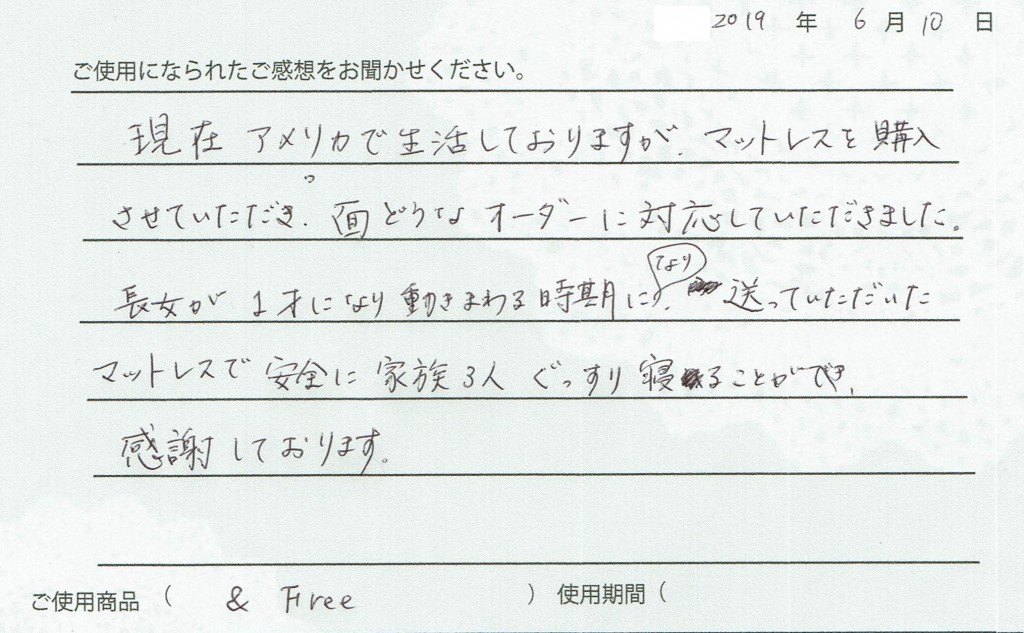 2019 年 6 月 10 日
ご使用になられたご感想をお聞かせください。
現在 アメリカで生活しておりますが、マットレスを購入
させていただき、面どうなオーダーに対応していただきました。
長女が 1才になり動きまわる時期になり、送っていただいた
マットレスで 安全に 家族3人 ぐっすり 寝ることができ、
感謝しております。
ご使用商品 ( & Free ) 使用期間 (